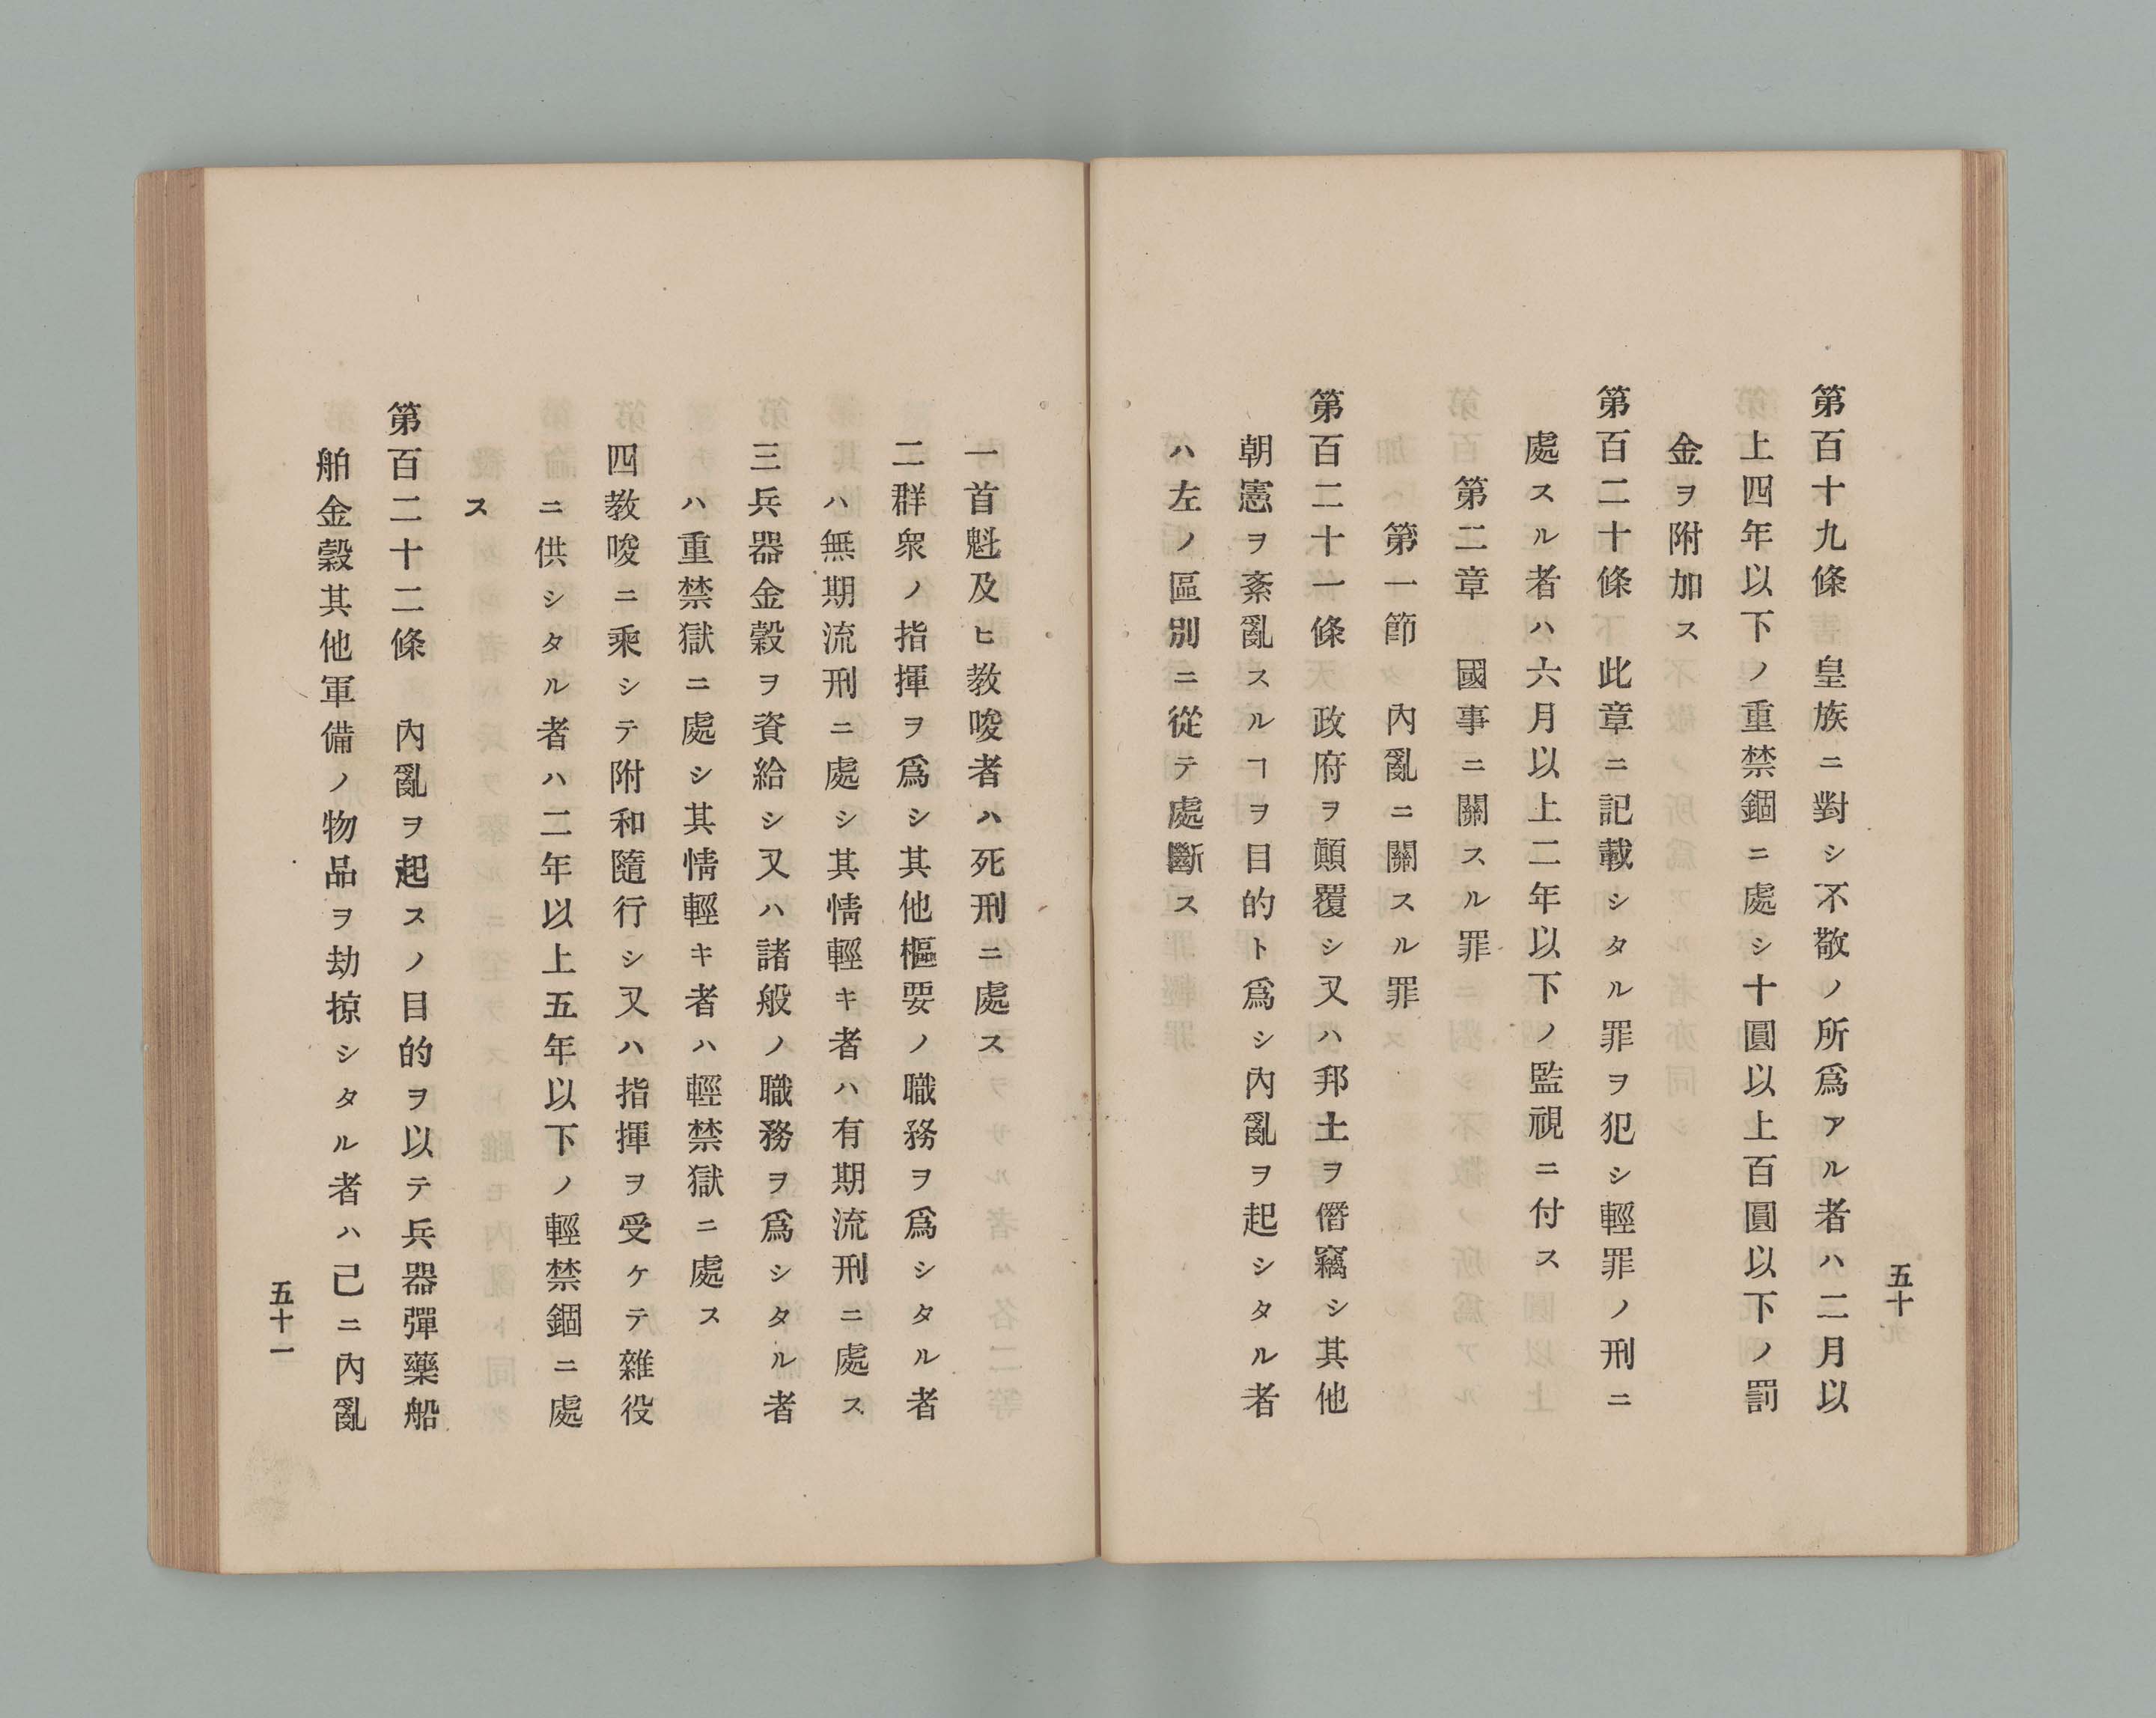 五十
第百十九條　皇族ニ對シ不敬ノ所爲アル者ハ二月以
上四年以下ノ重禁錮ニ處シ十圓以上百圓以下ノ罰
金ヲ附加ス
第百二十條　此章ニ記載シタル罪ヲ犯シ輕罪ノ刑ニ
處スル者ハ六月以上二年以下ノ監視ニ付ス
第二章　國事ニ關スル罪
第一節　內亂ニ關スル罪
第百二十一條　政府ヲ顚覆シ又ハ邦土ヲ僭竊シ其他
朝憲ヲ紊亂スルヿヲ目的ト爲シ內亂ヲ起シタル者
ハ左ノ區別ニ從テ處斷ス
一首魁及ヒ教唆者ハ死刑ニ處ス
二群衆ノ指揮ヲ爲シ其他樞要ノ職務ヲ爲シタル者
ハ無期流刑ニ處シ其情輕キ者ハ有期流刑ニ處ス
三兵器金穀ヲ資給シ又ハ諸般ノ職務ヲ爲シタル者
ハ重禁獄ニ處シ其情輕キ者ハ輕禁獄ニ處ス
四教唆ニ乘シテ附和隨行シ又ハ指揮ヲ受ケテ雜役
ニ供シタル者ハ二年以上五年以下ノ輕禁錮ニ處
ス
第百二十二條　內亂ヲ起スノ目的ヲ以テ兵器彈藥船
舶金穀其他軍備ノ物品ヲ劫掠シタル者ハ己ニ內亂
五十一